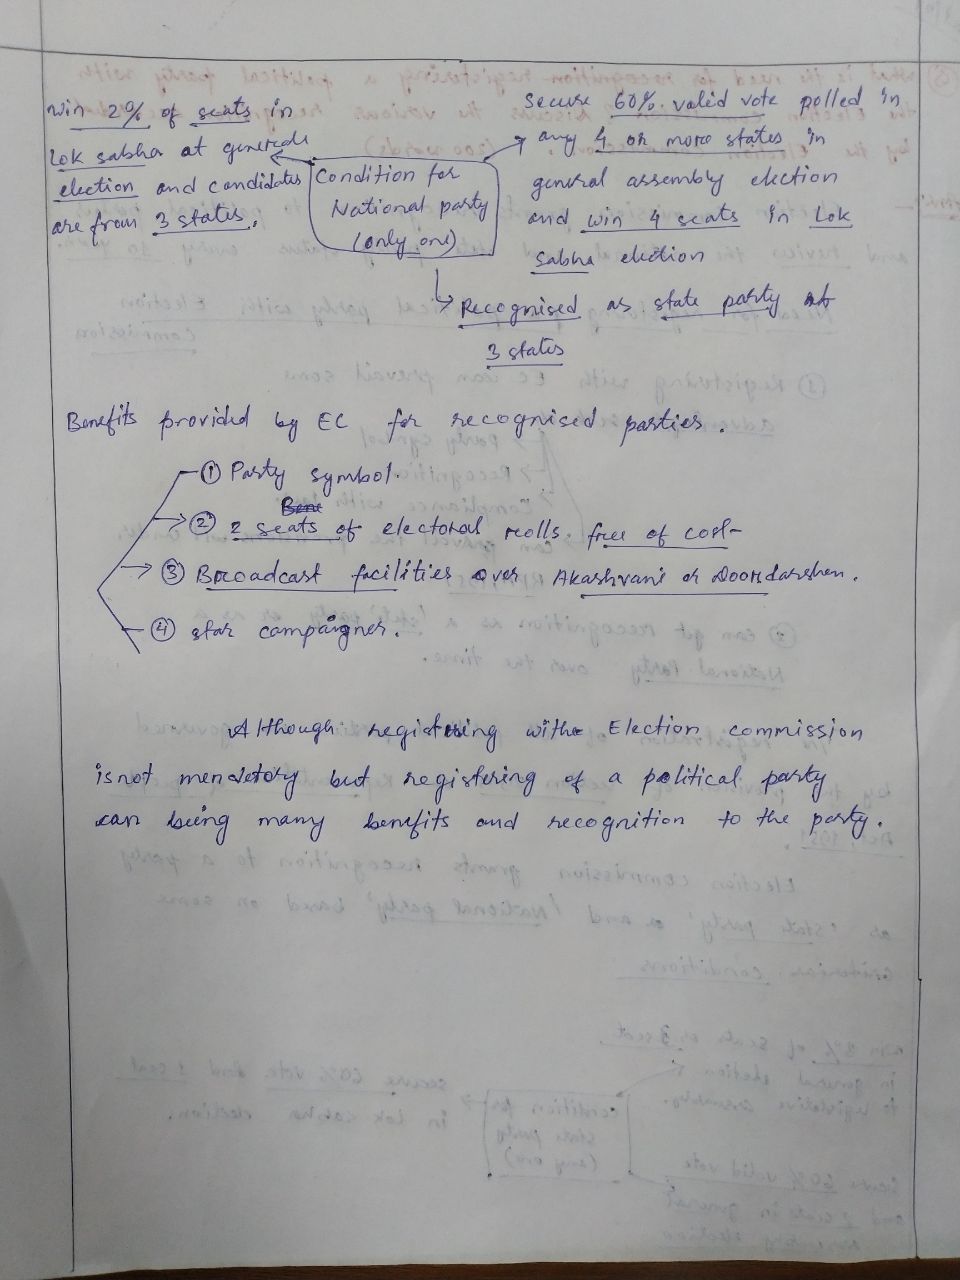 Win 2% of seats in
Lok sabha at generale
election and candidates
are from 3 states.
Condition for
National party
(only one)
Secure 60% valid vote polled in
any 4 or more states in
general assembly election
and win 4 seats in Lok
Sabha election
Recognised as state party at
3 states
Benefits provided by EC for recognised parties.
① Party symbol.
② 2 seats of electoral rolls. free of cost
③ Broadcast facilities over Akashvani or Doordarshan.
④ star campaigner.
Although registering with Election commission
is not mendetory but registering of a political party
can being many benefits and recognition to the party.